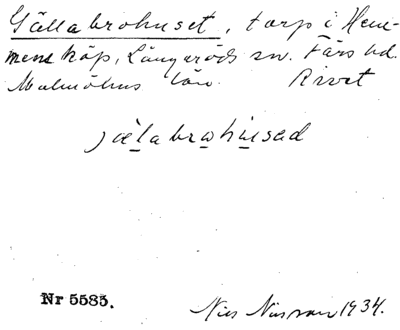 Gällabrohuset, torp i Hem-
mens köp, Långaröds sn. Färs hd.
Malmöhus län. Rivet
jälabrohusad
Nr 5585.
Nils Nilsson 1934.